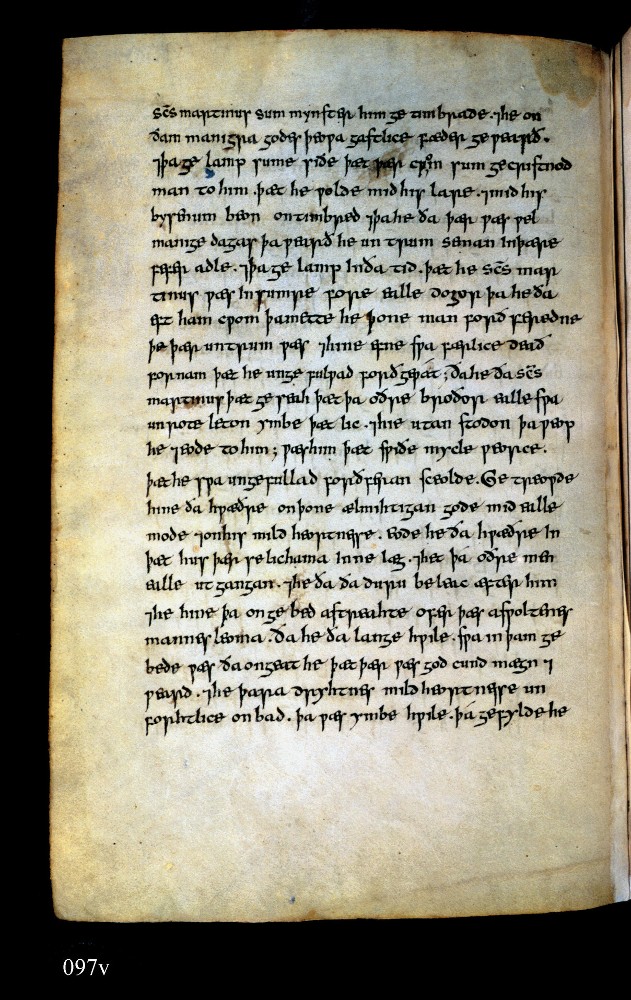 sc̄s martinus sum mynster him ge timbrade · ⁊he on
ðam manigra godes þeowa gastlice fæder ge wearð ·
⁊þa ge lamp sume siðe þæt þær cwom sum gecristnod
man to him · þæt he wolde mid his lare · ⁊mid his
bysenum beon on timbred ⁊þa he ða þær wæs wel
manige dagas þa wearð he un trum semnan In þære
fefer adle · ⁊þa ge lamp In ða tid · þæt he sc̄s mar
tinus wæs In sumre fore ealle dogor þa he ða
eft ham cwom þa mette he þone man forð feredne
þe þær untrum wæs ⁊hine efne swa færlice deað
fornam þæt he unge fulwad forð gewát ; ða he ða sc̄s
martinus þæt ge seah þæt þa oðre broðor ealle swa
unrote leton ymbe þæt lic · ⁊hie utan stodon þa weop
he ⁊eode to him ; wæs him þæt swiðe mycle weorce ·
þæt he swa ungefullad forðferan sceolde · Ge treowde
hine ða hwæðre on þone ælmihtigan gode mid ealle
mode ⁊on his mild heortnesse · eode he ða hwæðre In
þæt hus þær se lichama Inne læg · ⁊het þá oðre men
ealle ut gangan · ⁊he ða ða duru be leac æfter him
⁊he hine þa on ge bed astreahte ofer þæs aswoltenes
mannes leoma · ða he ða lange hwile · swa in þam ge
bede wæs ða ongeat he þæt þær wæs god cund mægn ⁊
weard · ⁊he þara dryhtnes mild heortnesse un
forhtlice on bad · þa wæs ymbe hwile · þá gefylde he
097v